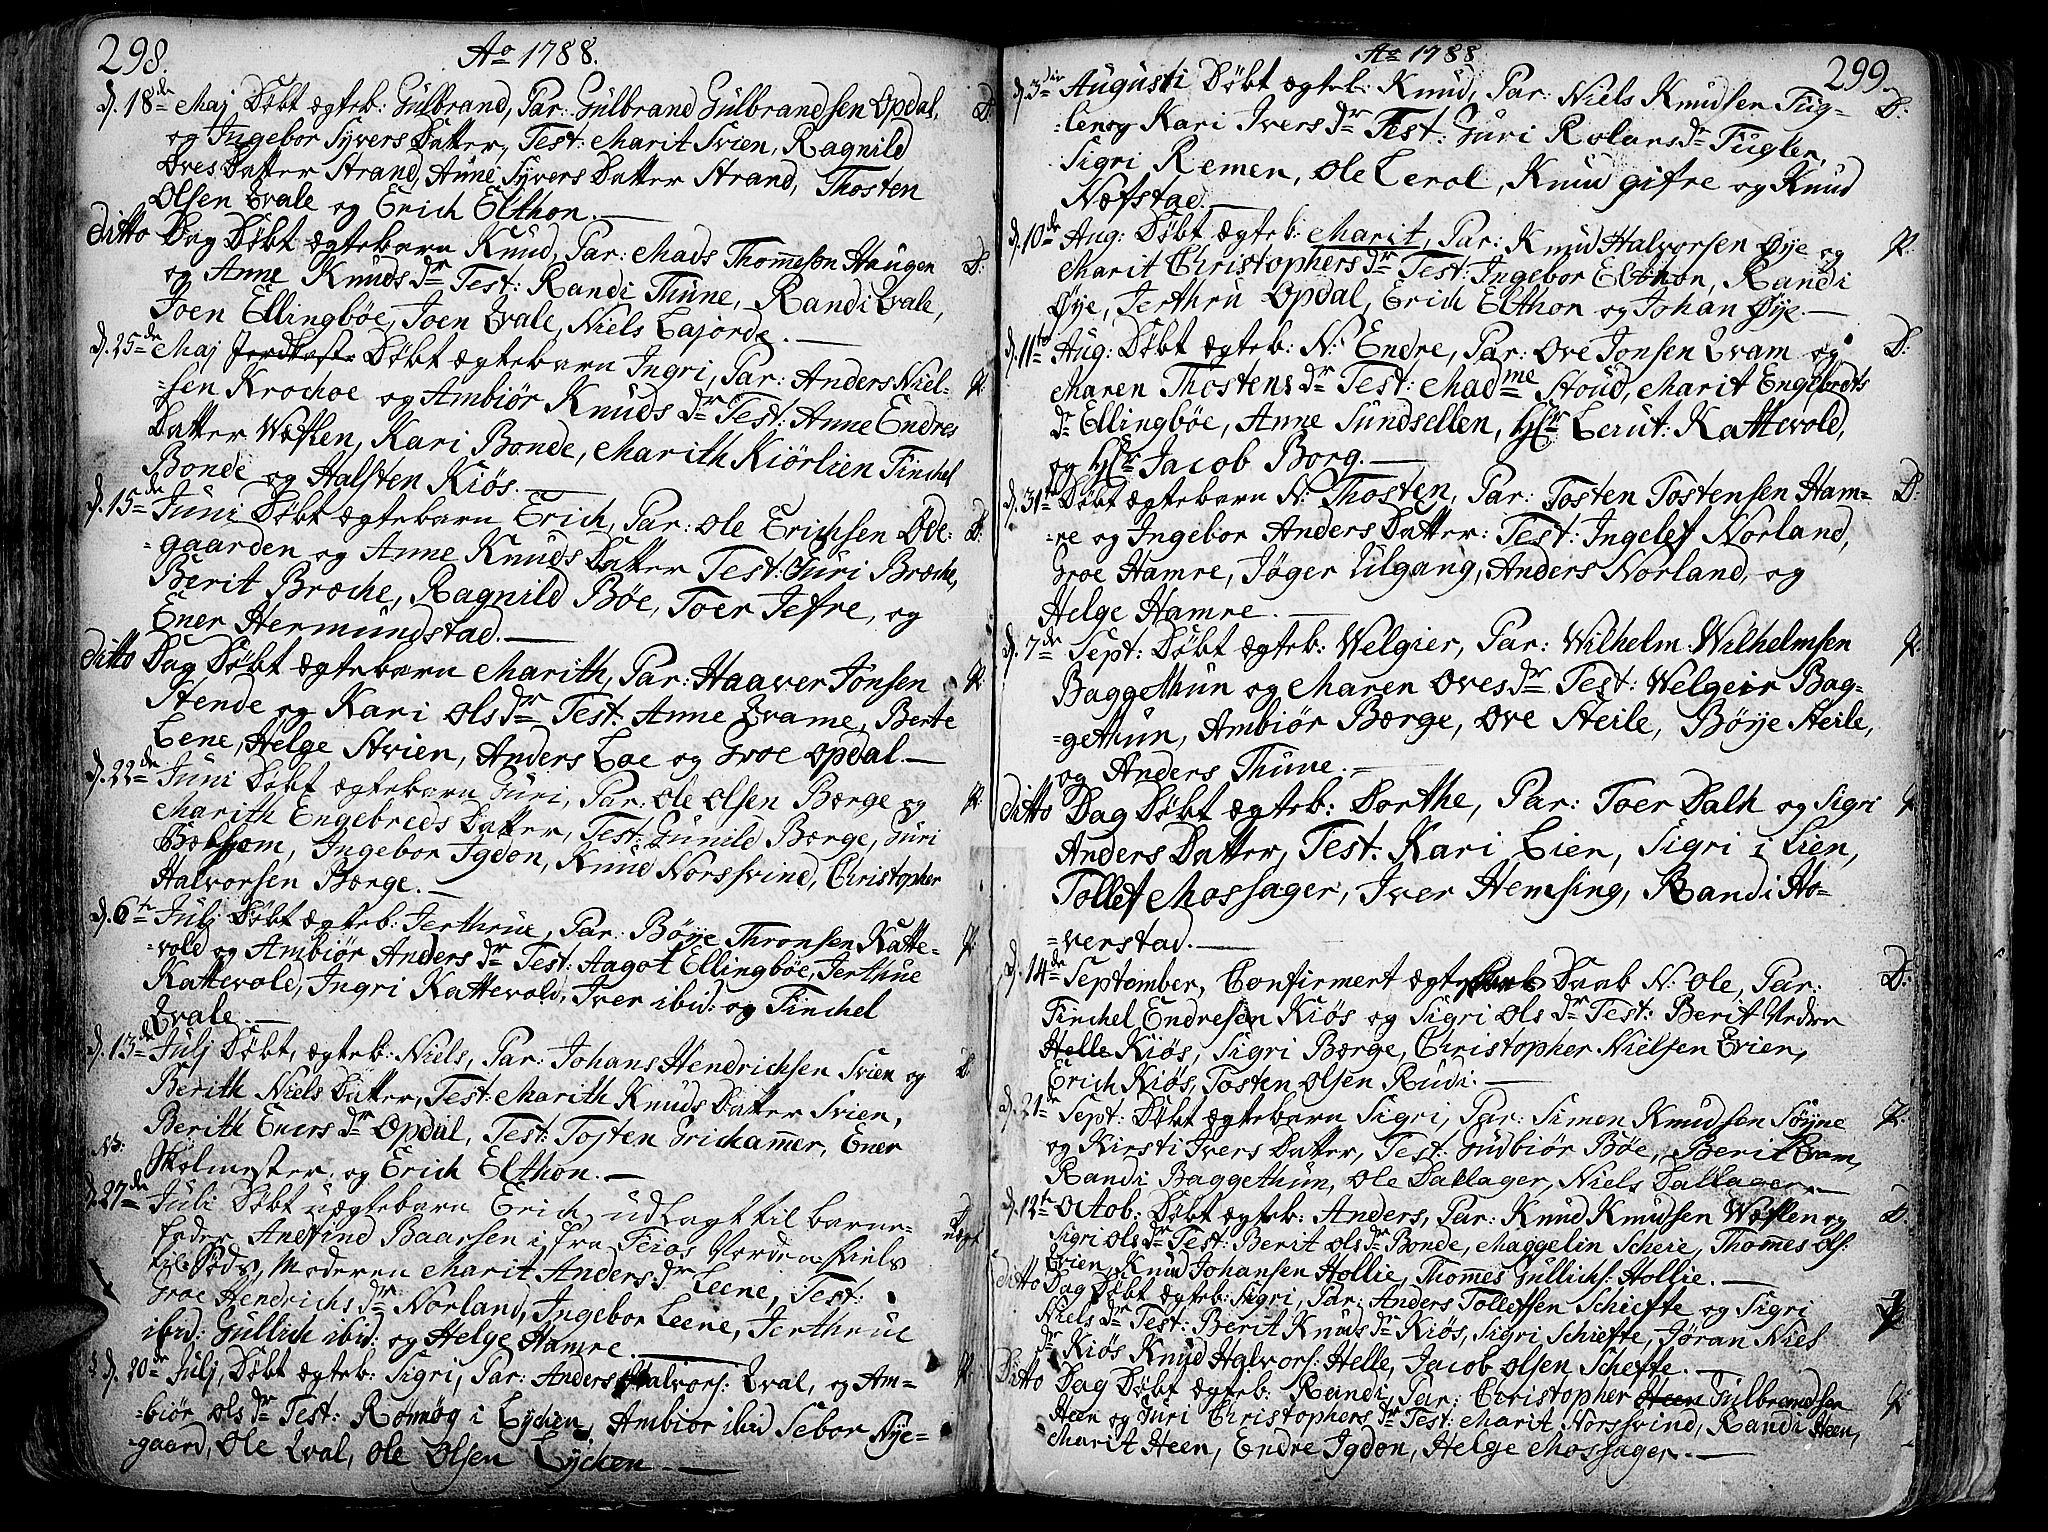 298.
Ao 1788.
d. 18de Maj Døbt ægteb: Gulbrand, Par: Gulbrand Gulbrandsen Opdal, D.
og Ingebor Syvers Datter, Test: Marit Svien, Ragnild
Oves Datter Strand, Anne Syvers Datter Strand, Thosten
Olsen Qvale og Erich Elthon.
Ditto Dag Døbt ægtebarn Knud, Par: Mads Thomesøn Haugen D:
og Anne Knuds Dr Test: Randi Thune, Randi Qvale,
Joen Ellingbøe, Joen Qvale, Niels Lajorde.
d. 25de Maj Døbt ægtebarn Ingri, Par: Anders Niel- P:
-sen Krochoe og Ambiør Knuds Dr Test: Anne Endres
Datter Wæflen, Kari Bonde, Marith Kiørlien Finchel
Bonde og Halsten Kiøs.
d. 15de Juni Døbt ægtebarn Erich, Par: Ole Erichsen Øde- D:
-gaarden og Anne Knuds Datter Test: Guri Broche,
Berit Broche, Ragnild Bøe, Toer Jefre, og
Ener Hermundstad.
Ditto Dag Døbt ægtebarn Marith, Par: Haaver Jonsen P:
Hende og Kari Ols Dr Test: Anne Qvame, Berte
Lene, Helge Svien, Anders Loe og Groe Opdal.
d. 22de Juni Døbt ægtebarn Guri, Par: Ole Olsen Børge og P:
Marith Engebreds Datter, Test: Gunild Børge, Guri
Ingebor Igdon, Knud Norssvind, Christopher
Halvorsen Børge.
d. 6te Julj Døbt ægteb: Jerthrue, Par: Bøye Thronsen Katte- P:
-vold og Ambiør Anders Dr Test: Aagot Ellingbøe, Jerthrue
Kattevold, Ingri Kattevold, Iver ibid: og Finchel
Qvale.
d. 13de Julj Døbt, ægteb: Niels, Par: Johans Hendrichsen Svien og D.
Berith Niels Datter, Test: Marith Knuds Datter Svien,
Berith Eners Dr Opdal, Test: Tosten Grichamer, Ener
Skolmester, og Erich Elthon.
NB.
d. 27de Juli Døbt uægtebarn Erich, udlagt til barne- D
fader Andfind Baarsen i fra Feios Nordre Fiels uægt
til Søds, Moderen Marit Anders Dr Leene, Test:
Groe Hendrichs Dr Norland, Ingebor Leene, Jerthrue
ibid: Gullich ibid: og Helge Hamre.
d. 20de Julj, Døbt ægteb: Sigri, Par: Anders Halvors: Qval, og Am- P:
-biør Ols Dr Test: Rønnøg i Lycken, Ambiør ibid Sebor Nye-
gaard, Ole Qval, Ole Olsen Lycken
299.
Ao 1788
d. 3die Augusti Døbt ægteb: Knud, Par: Niels Knudsen Fug- D:
-len og Kari Ivers Dr Test: Guri Rolars Dr Fugler,
Sigri Remen, Ole Lerol, Knud gifre og Knud
Nøfstad.
d. 10de Aug: Døbt ægteb: Marit, Par: Knud Halvorsen Øye og P:
Marit Christophers Dr Test: Ingebor Elthon, Randi
Øye, Jerthru Opdal, Erich Elthon og Johan Øye.
d. 11te Aug: Døbt ægteb: N: Endre, Par: Ove Jonsen Qvam og D:
Maren Thostens Dr Test: Madme Stoud, Marit Engebrets
Dr Ellingbøe, Anne Sundsellen, Hr Leiut: Kattevold,
og Hr Jacob Borg.
d. 31te Døbt ægtebarn N: Thosten, Par: Tosten Tostensen Ham- D:
-re og Ingebor Anders Datter: Test: Ingelef Norland,
Groe Hamre, Jøger Ulgang, Anders Norland, og
Helge Hamre.
d. 7de Sept: Døbt ægteb: Welgier, Par: Wilhelm Wilhelmsen P:
Baggethun og Maren Oves Dr Test: Welgeir Bag-
-gethun, Ambiør Børge, Ove Steile, Bøye Steile,
og Anders Thune.
Ditto Dag Døbt ægteb: Dorthe, Par: Toer Dalh og Sigri P
Anders Datter, Test: Kari Lien, Sigri i Lien,
Tollef Mossager, Iver Hemsing, Randi Ho-
-verstad.
d. 14de September, Confirmert ægte Daab N: Ole, Par: D:
Finchel Endresen Kiøs og Sigri Ols Dr Test: Berit Nedre
Helle Kiøs, Sigri Børge, Christopher Nielsen Qvien,
Erich Kiøs, Tosten Olsen Rudi.
d. 21de Sept: Døbt ægtebarn Sigri, Par: Simen Knudsen Søyne P:
og Kirsti Ivers Datter, Test: Gudbiør Bøe, Berit Qvam,
Randi Baggethun, Ole Dallager, Niels Dallager
d. 12te Octob: Døbt ægteb: Anders, Par: Knud Knudsen Wæflen og D.
Sigri Ols Dr Test: Berit Ols Dr Bonde, Maggelin Scheie, Thomes Ols:
Qvien, Knud Johansen Hollie, Thomes Gullichs: Hollie.
Ditto Dag Døbt ægteb: Sigri, Par: Anders Tollefsen Schiefte og Sigri P
Niels Dr Test: Berit Knuds Dr Kiøs, Sigri Schiefte, Jøran Niels
Dr Kiøs Knud Halvors: Helle, Jacob Olsen Schefte.
Ditto Dag Døbt ægteb: Randi, Par: Christopher Heen Gulbrandsen P:
Heen og Guri Christophers Dr Test: Marit Norssvind, Randi Heen,
Marit Heen, Endre Igdon, Helge Mossager.